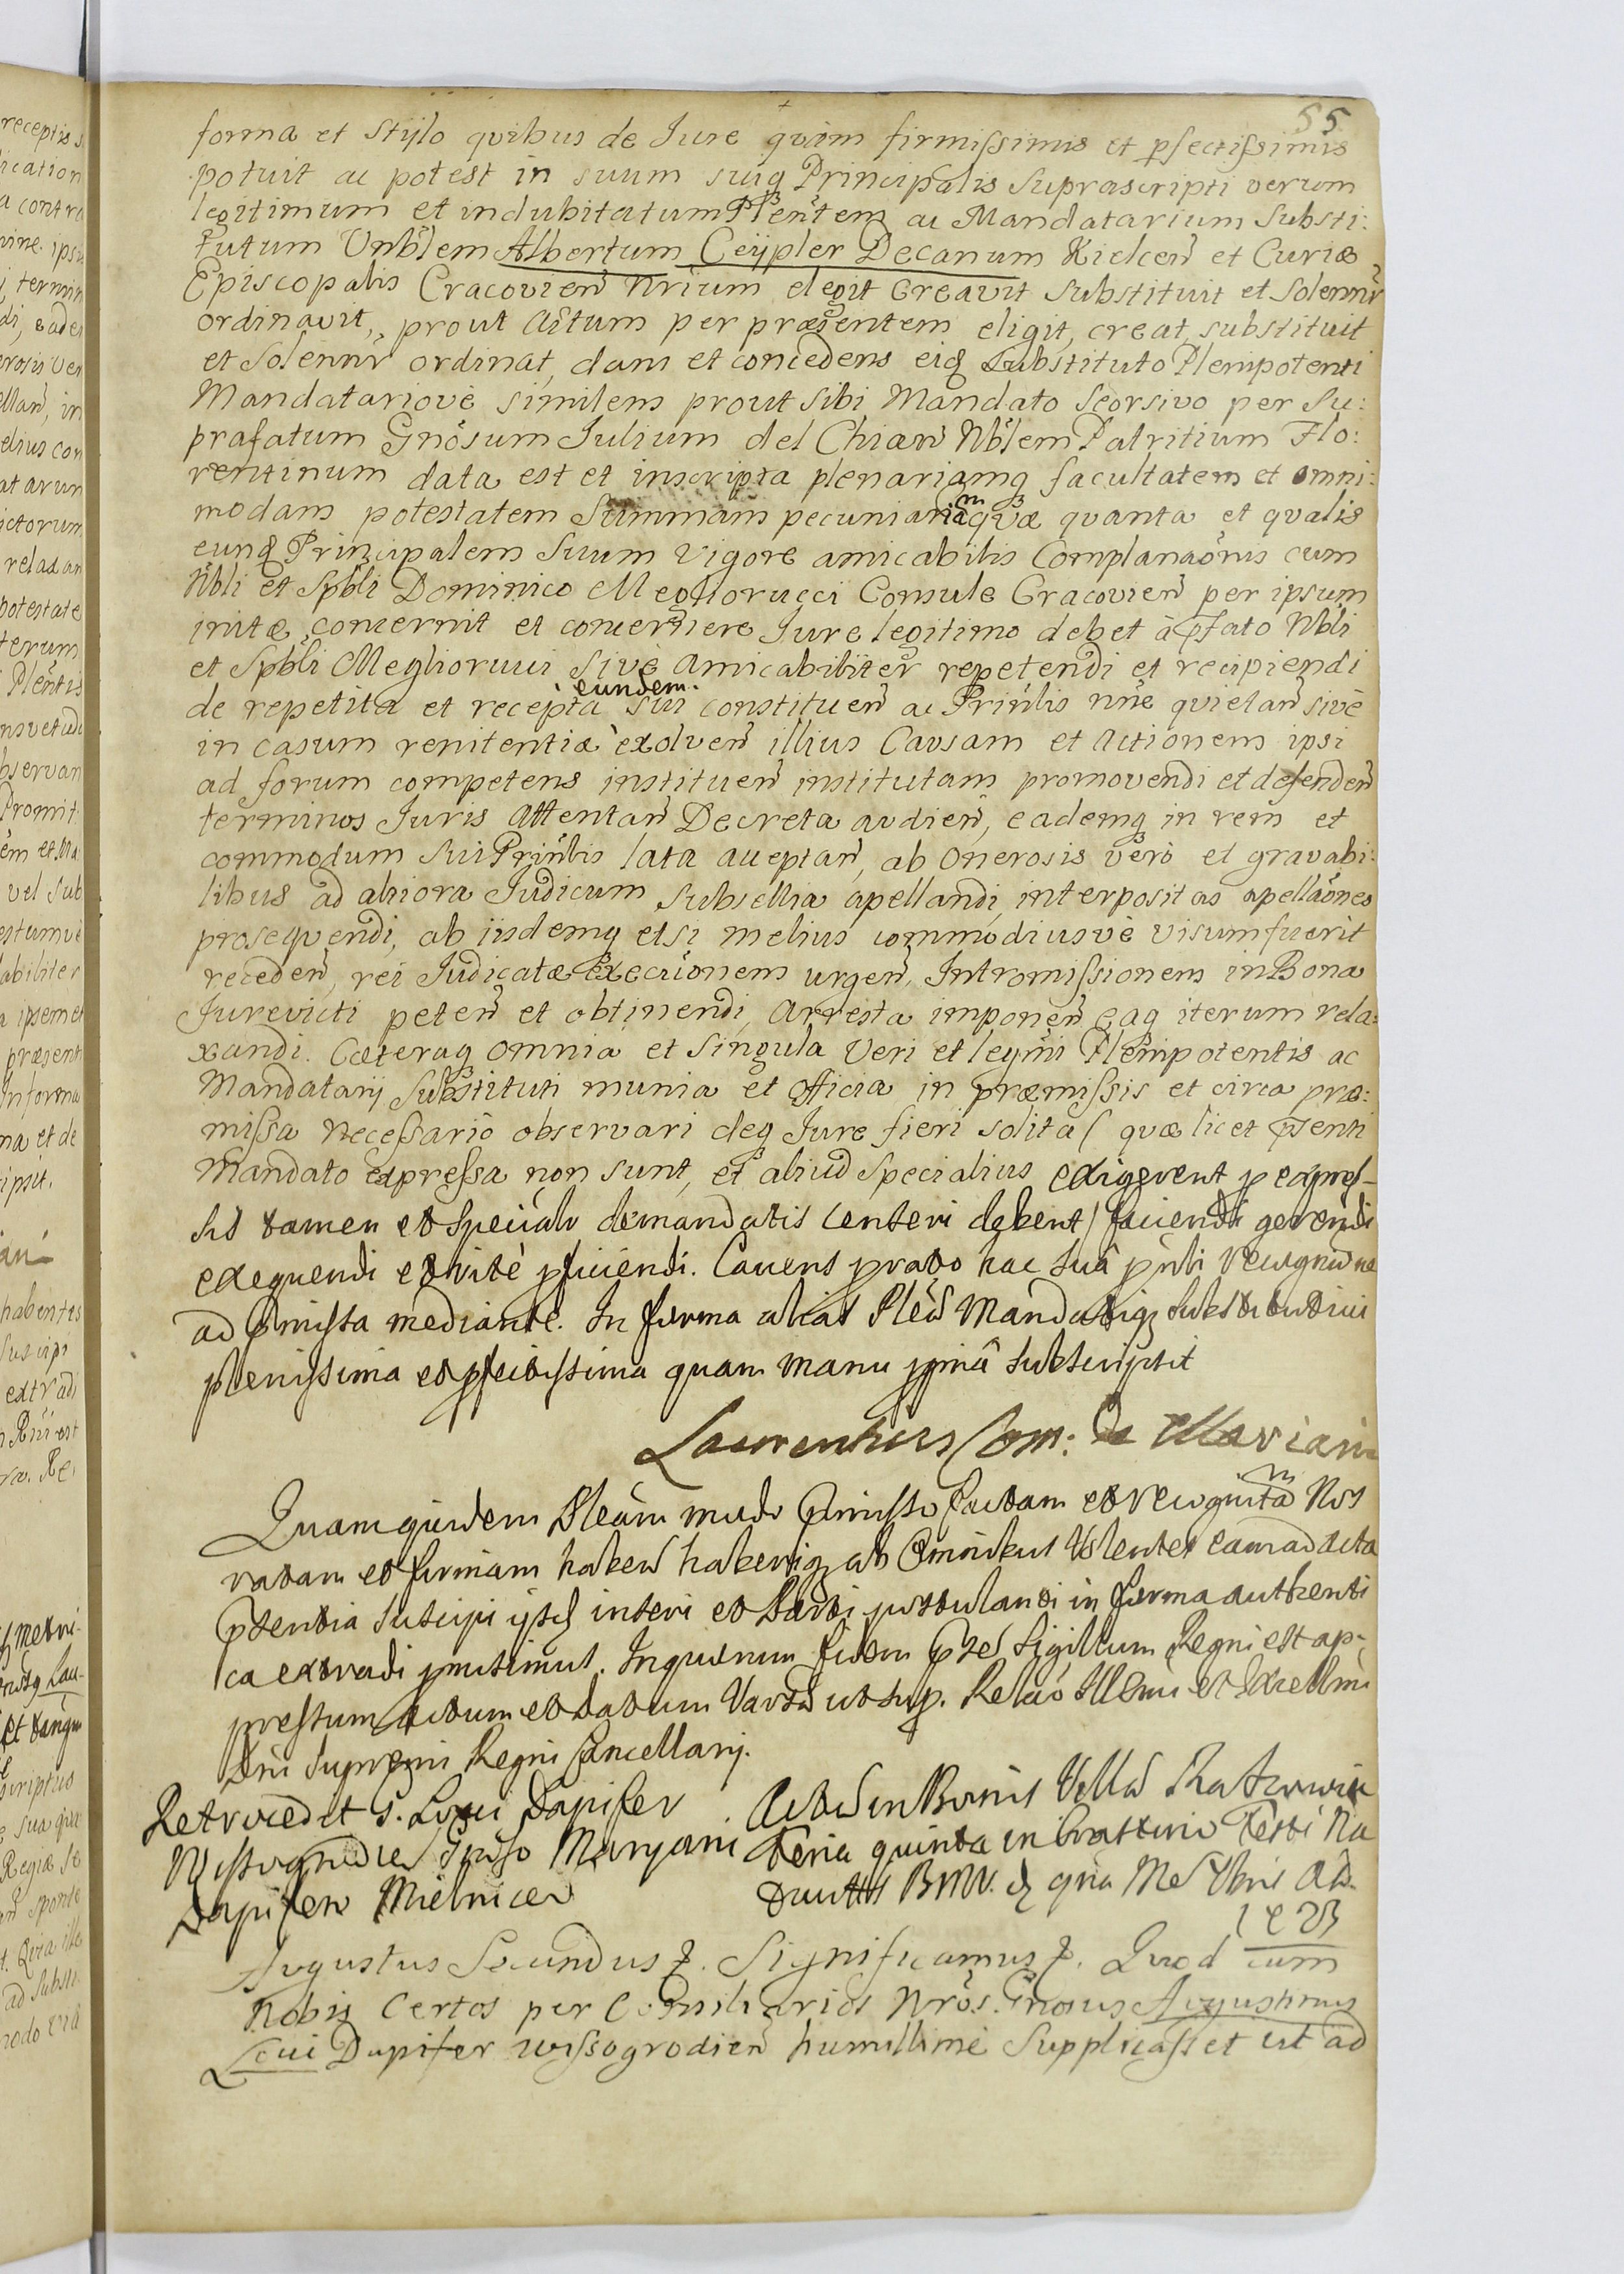 55
forma et Stijlo quibus de Jure quàm firmissimis et pfectissimis
potuit ac potest in suum suiq Principalis Suprascripti verum
legitimum et indubitatum Plentem ac Mandatarium Substi:
tutum Vnblem Albertum Ceijpler Decanum Kielcen et Curiæ
Episcopalis Cracovien Nrium elegit Creavit Substituit et Solennr
ordinavit, prout Actum per præsentem eligit, creat, substituit
et Solennr ordinat, dans et concedens eid Substituto Plenipotenti
Mandatariove similem prout Sibi Mandato Seorsivo per Su:
prafatum Gnosum Julium del Chiaro Nblem Patritium Flo:
rentinum data est et inscripta plenariamq facultatem et omni:
modam potestatem Summam pecuniariam quæ quanta et qualis
eund Principalem Suum vigore amicabilis Complanaonis cum
Nbli et Spbli Dominico Megliorucci Consule Cracovien per ipsum
initæ concernit et concernere Jure legitimo debet à pfato Nbli
et Spbli Megliorucci sivè Amicabiliter repetendi et recipiendi
de repetita et recepta eundem. sui constituen ac Prinlis nne quietan sivè
in casum renitentiæ exolven illius Causam et Actionem ipsi
ad forum competens instituen institutam promovendi et defenden
terminos Juris Attentan Decreta audien, eademq in rem et
commodum Sui Prinlis lata acceptan, ab Onerosis verò et gravabi:
libus ad altiora Judicum Subsellia apellandi, interpositas apellaones
prosequendi, ab iisdemq etsi melius commodiusvè visum fuerit
receden, rei Judicatæ Execuonem urgen, Intromissionem in Bona
Jurevicti peten et obtinendi, Arresta imponen eaq iterum rela:
xandi. Cæteraq omnia et Singula Veri et legmi Plenipotentis ac
Mandatarij Substituti munia et Officia in præmissis et circa præ:
missa necessariò observari deq Jure fieri solita ( quæ licet psenti
Mandato expressa non sunt, et aliud Specialius exigerent p expres-
sis tamen et specialr demandatis censeri debent) faciendi gerendi
exequendi et ritè pficiendi. Cavens prato hac Suâ pnti recognitne
ad pmissa mediante. In forma alias Plen Mandatiq Substitutivi
plenissima et pfectissima quam manu ppriâ subscripsit
Laurentius Com: De Mariani
Quamquidem Pleam modo pmisso factam et recognitam Nos
ratam et firmam haben haberiq ab Omnibus Volentes eam ad acta
ptentia suscipi ipsq inseri et Parti postulanti in forma authenti
ca extradi pmisimus. In quorum fidem ptes Sigillum Regni est ap-
pressum. Actum et Datum Vars ut sup. Relaó Illmi et Excellmi
Dni Supremi Regni Cancellarij.
Retrocedit S. Loxi Dapifer
Wissogrodien Gnoso Maryani
Dapifero Mielnicen
Act in Bonis Villa
Feria quinta in Crastino Festi Na
BMV. Ao
Augustus Secundus &. Significamus &. Quod cum
Nobis Certos per Consiliarios Nros. Gnosus Augustinus
Locci Dapifer wissogrodien humillimè Supplicasset ut ad